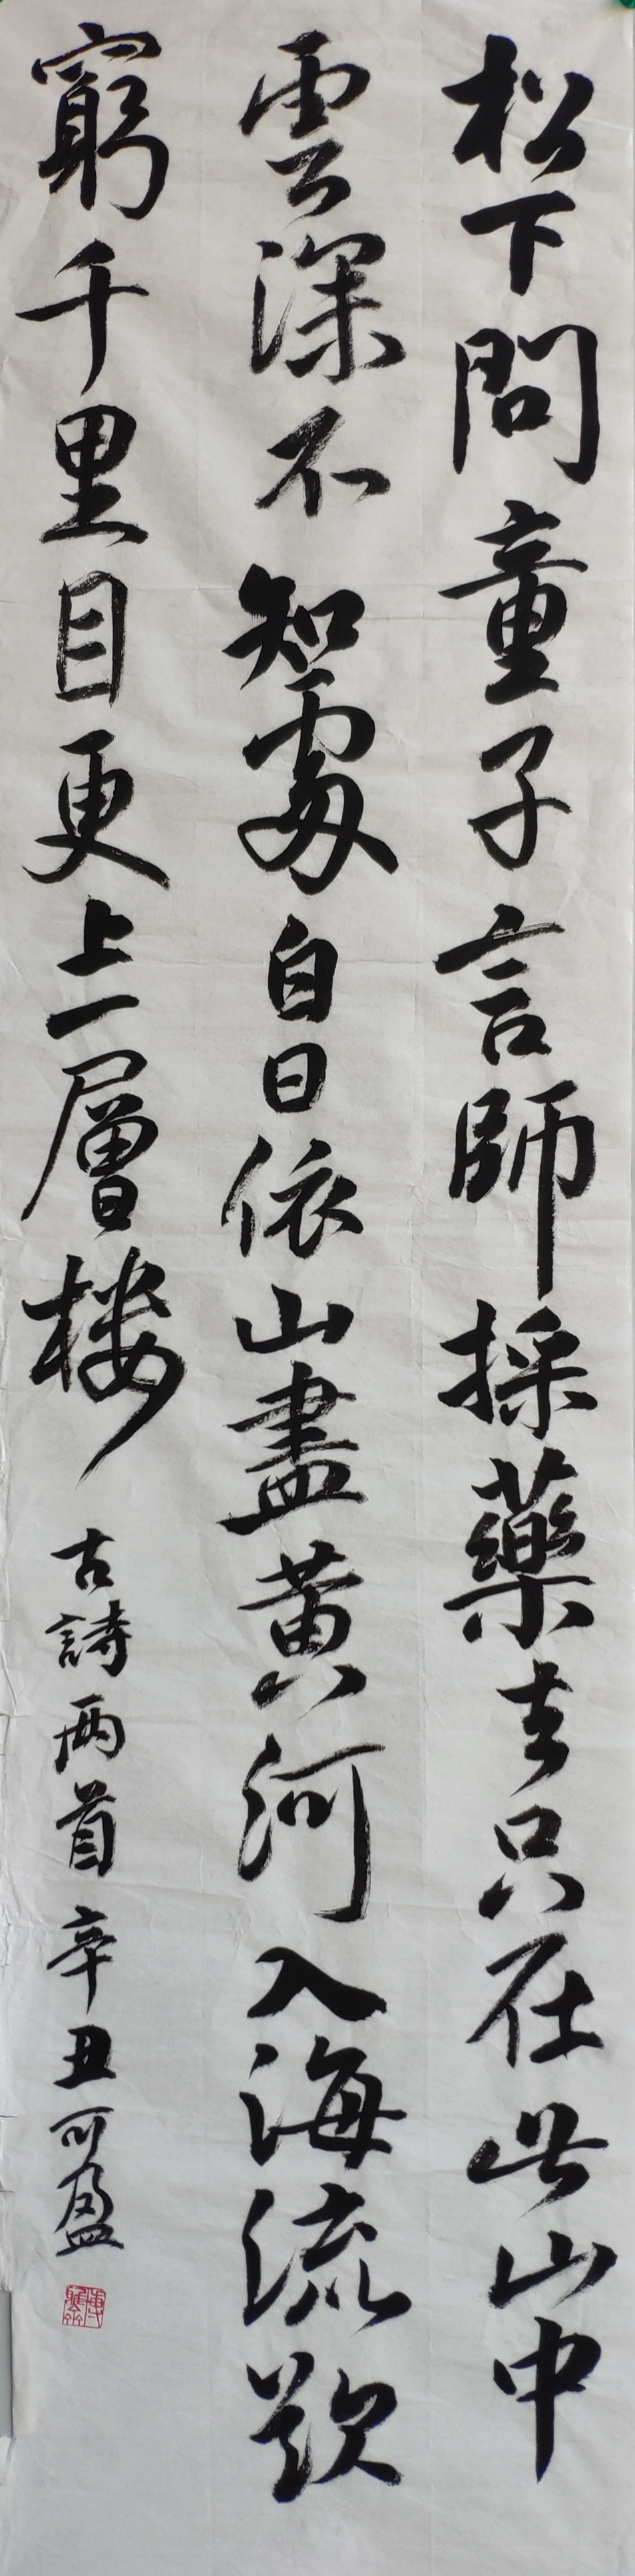 松下問童子言師採藥去只在此山中
雲深不知處白日依山盡黄河入海流欲
窮千里目更上一層楼
古詩两首辛丑可盈